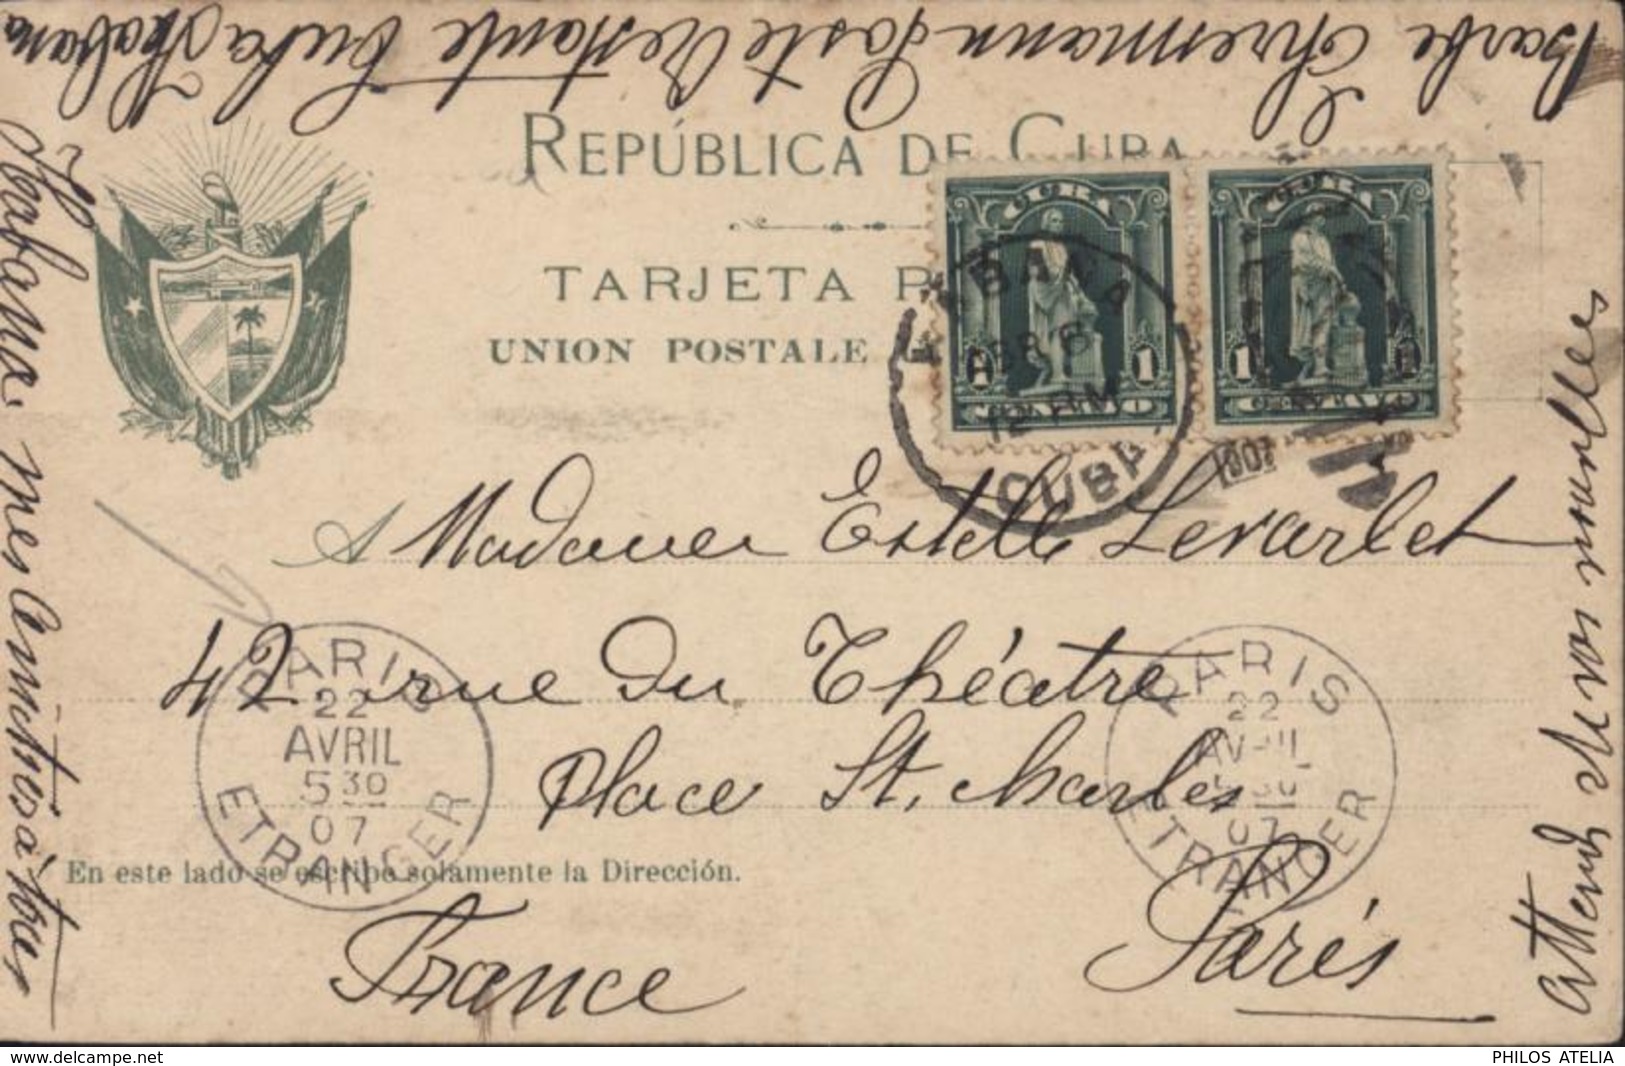 Barbe Chremann Poste Restante Cuba Habana
REPÚBLICA DE CUBA
TARJETA P
UNION POSTALE
CUBA
CUBA
1 1
CENTAVO
1 1
CENTAVO
HABANA
ABR 6
12 PM
CUBA
1907
A Madame Estelle Levarlet
42 rue du Théatre
Place St. Charles
Parés
France
PARIS
22
AVRIL
5 30
07
ETRANGER
PARIS
22
AVRIL
5 30
07
ETRANGER
En este lado se escribe solamente la Dirección.
Habana. mes amitiés à tous
attend de vos nouvelles
PHILOS ATELIA
www.delcampe.net